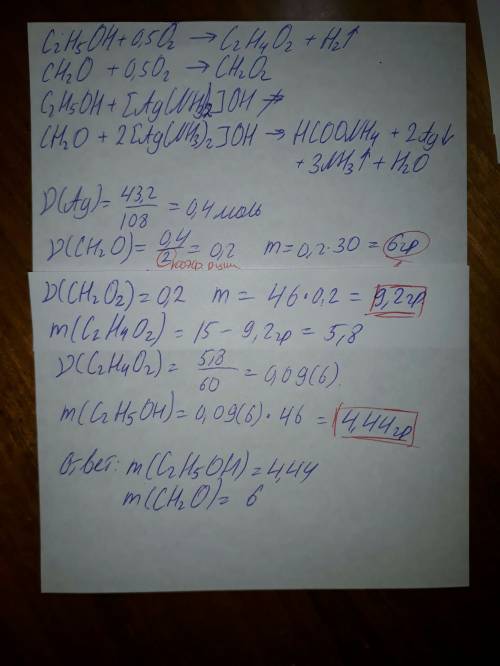 C2H5OH + 0,5O2 → C2H4O2 + H2↑
CH2O + 0,5O2 → CH2O2
C2H5OH + [Ag(NH3)2]OH ≠
CH2O + 2[Ag(NH3)2]OH → HCOONH4 + 2Ag↓
+ 3NH3↑ + H2O
ν(Ag) = 43,2/108 = 0,4 моль
ν(CH2O) = 0,4/2 = 0,2 m = 0,2·30 = 6гр
ν(CH2O2) = 0,2 m = 46·0,2 = 9,2гр
m(C2H4O2) = 15 - 9,2гр = 5,8
ν(C2H4O2) = 5,8/60 = 0,09(6)
m(C2H5OH) = 0,09(6)·46 = 4,44гр
Ответ: m(C2H5OH) = 4,44
m(CH2O) = 6